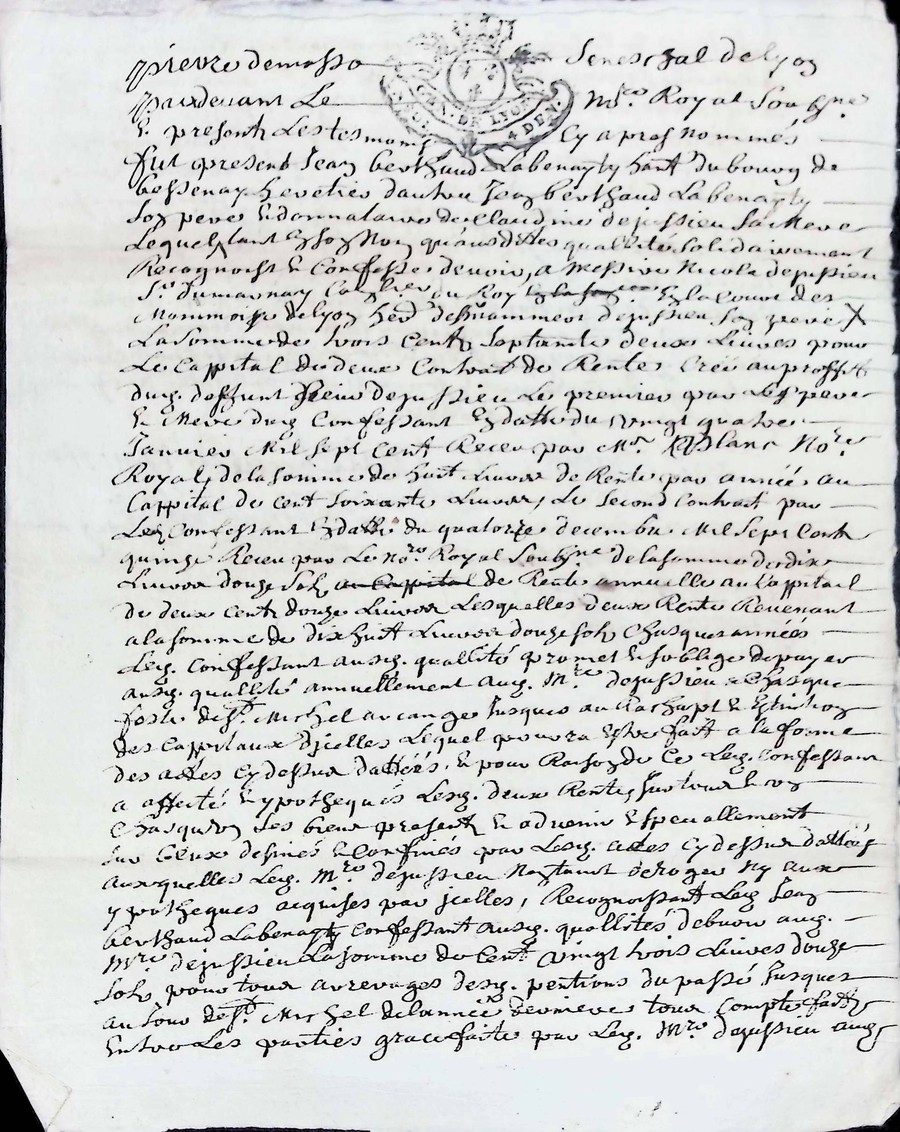 pierre demasso Seneschal de Lyon
GEN. DE LYON 4 DEN.
pardevant Le Nore. Royal Soubne
Et presents Les tesmoins Cy apres Nommés
fut present Jean berthaud Labenasty hant. du bourg de
bessenay heretier dautre Jean berthaud Labenasty
Son pere Et donnataire de Claudine dejussieu Sa Mere
Lequel tant En Son Nom qu'ausdites quallités Solidairement
Recognoist Et Confesse devoir, a Messire Nicolas dejussieu
Sr. Du Con.er du Roy En la Cour des
Monnoies de Lyon her. dejussieu Son pere X
La Somme de trois Cents Septante deux Livres pour
Le Cappital de deux Contrats de Rentes Créé au proffit
dud. deffunt Sieur dejussieu Le premier par Les pere
Et Mere dud. Confessant En datte du vingt quatre
Janvier Mil Sept Cent Receu par Me. Blanc Nore.
Royal, de la Somme de huit Livres de Rente par année au
Cappital de cent Soixante Livres, Le Second Contrat par
Led. Confessant En datte du quatorze decembre Mil Sept Cent
quinze Receu par Le Nore. Royal Soubne. de la Somme de dix
Livres douze Sols au Cappital de Rente annuelle au Cappital
de deux Cents douze Livres Lesquelles deux Rentes Revenant
a la Somme de dix huit Livres douze Sols Chasques années
Led. Confessant ausd. quallités promet Et Soblige de payer
ausd. quallités annuellement aud. Mre. dejussieu a Chasque
feste de St. Michel arcange Jusques au Rachapt Et Extinction
des Cappitaux d'jcelles Lequel pourra Estre fait a la forme
des actes Cy dessus dattées, Et pour Raison de Ce Led. Confessant
a affecté Et ypothequés Lesd. deux Rentes, Sur tous Et un
Chasqun Ses biens presents Et advenir Et Speciallement
Sur Ceux desinés Et Confinés par Lesd. actes Cy dessus dattées
auxquelles Led. Mre. dejussieu Nentant deroger Ny aux
ypotheques acquises par jcelles, Recognoissant Led. Jean
berthaud Labenasty Confessant ausd. quallités debvoir aud.
Mre. dejussieu La Somme de Cent vingt trois Livres douze
Sols pour tous arrerages desd. pentions du passé Jusques
au Jour de St. Michel de lannée derniere tous Compte faits
Entre Les parties grace faite par Led. Mre. dejussieu aud.